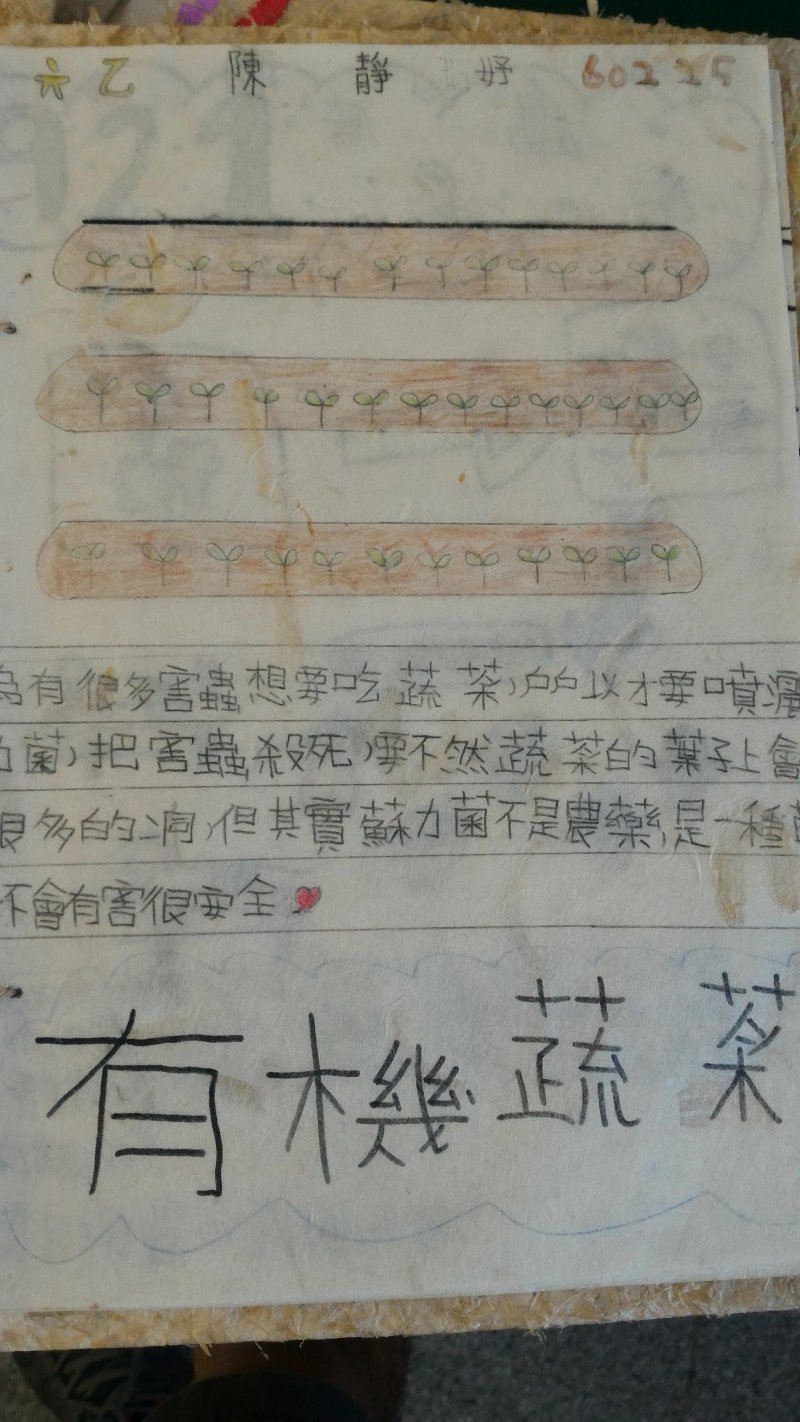 六乙 陳靜妤 60225
為有很多害蟲想要吃蔬菜，所以才要噴灑
菌，把害蟲殺死，要不然蔬菜的葉子上會
很多的洞，但其實蘇力菌不是農藥，是一種
不會有害很安全
有機蔬菜